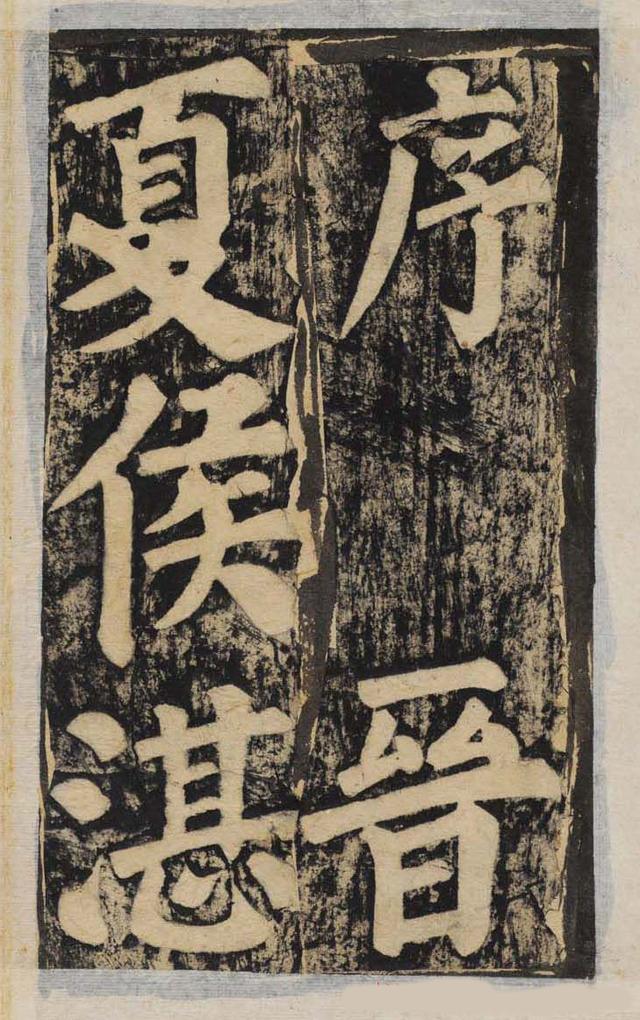 序　晉
夏侯湛